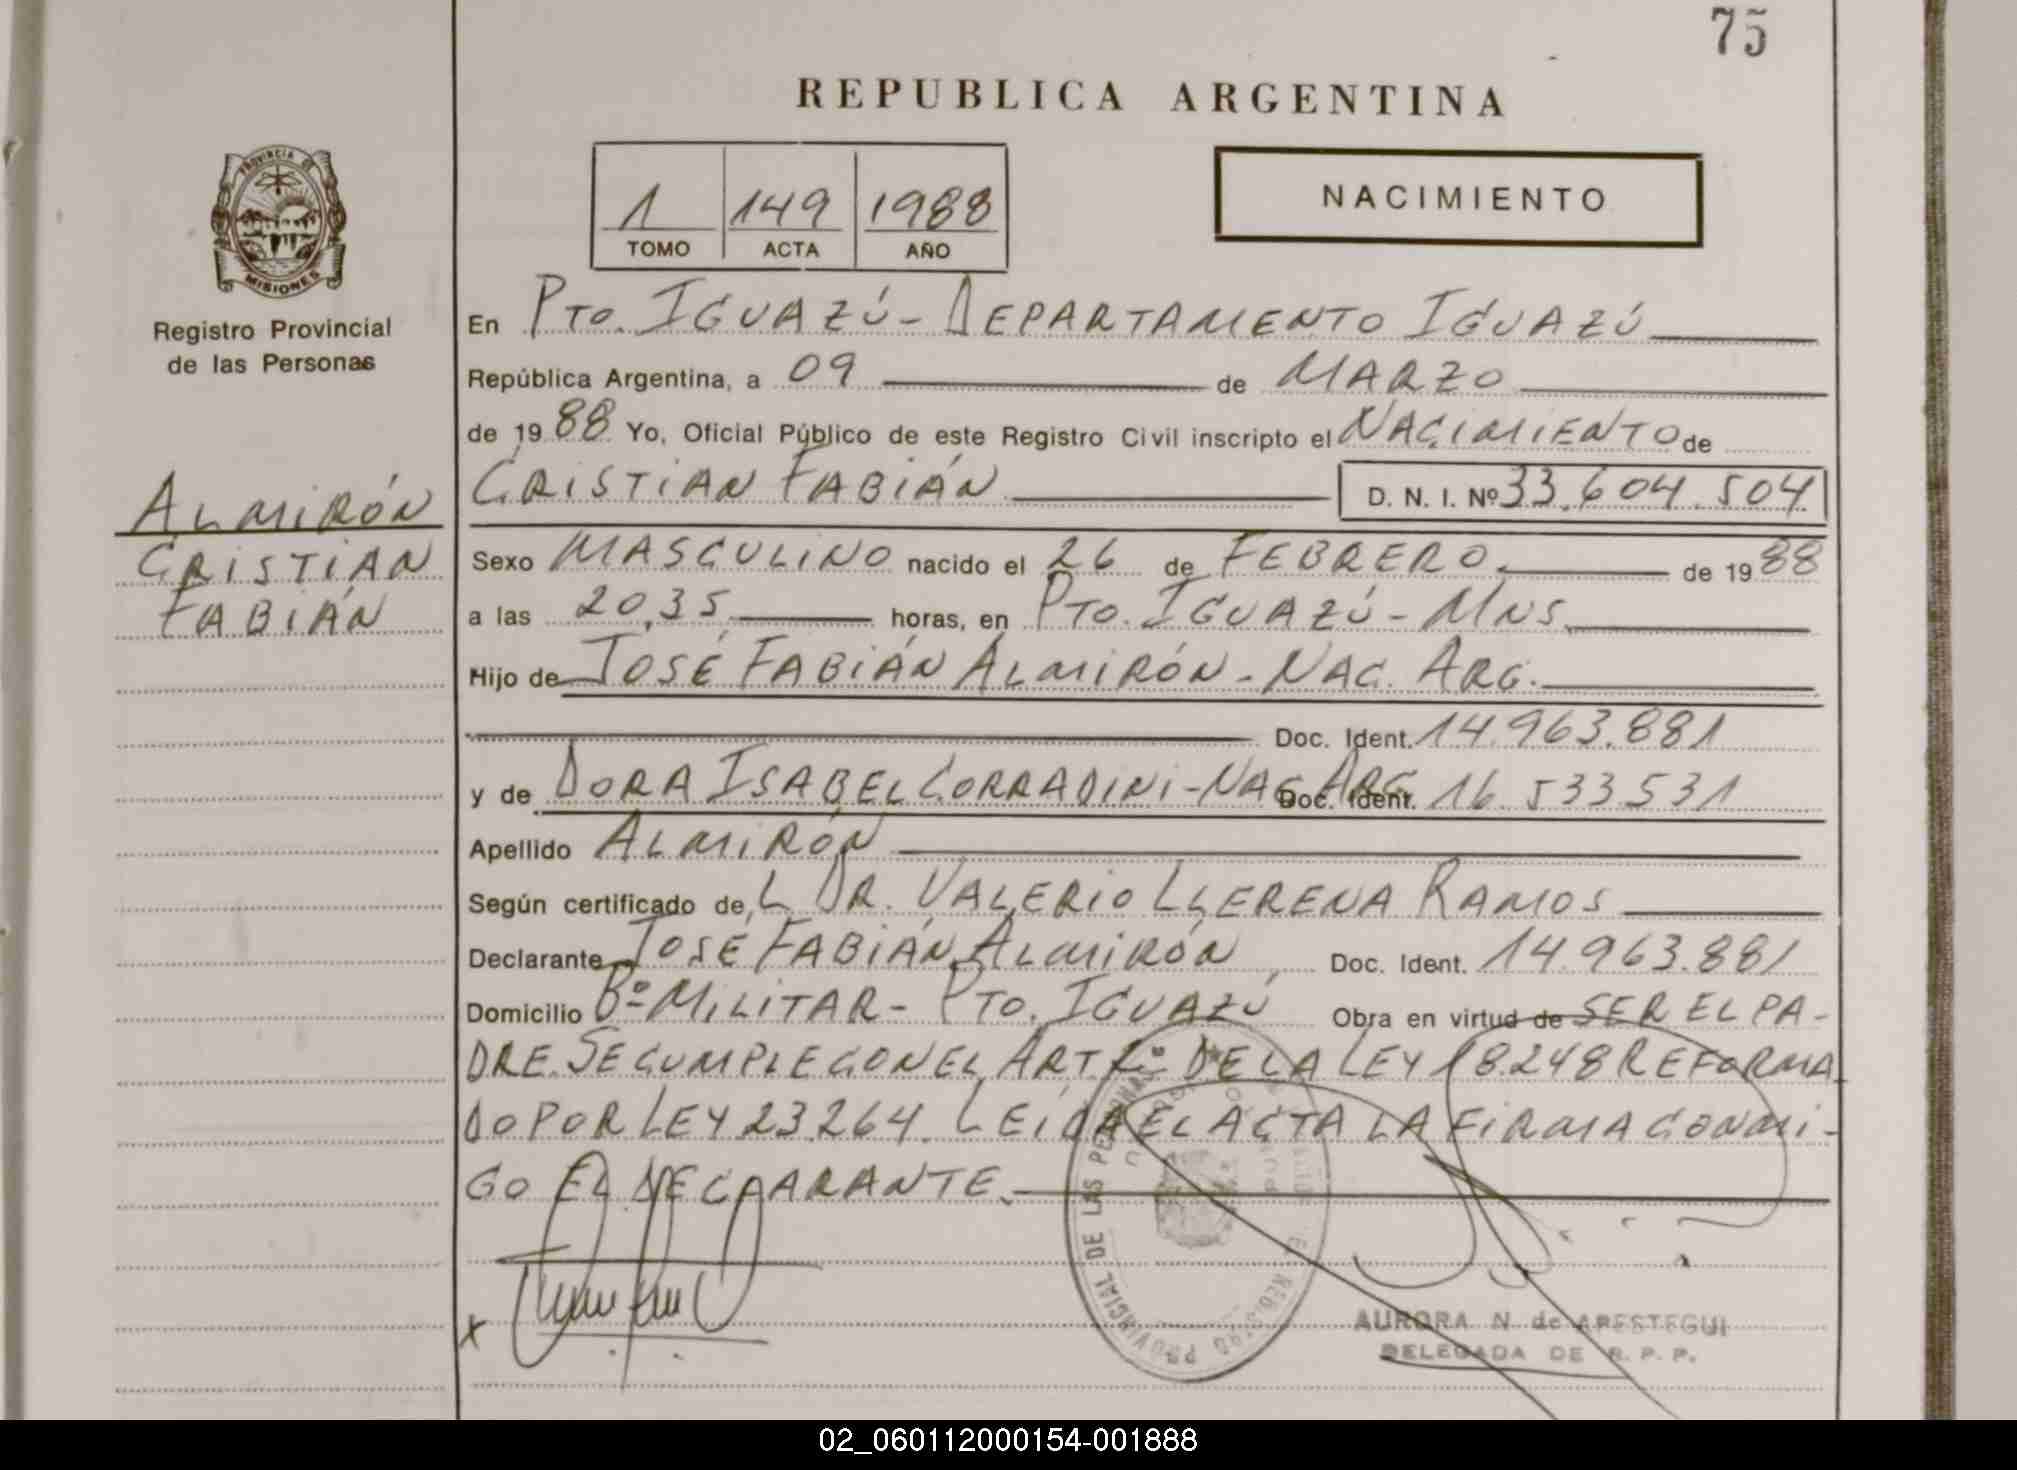 75
REPUBLICA ARGENTINA
PROVINCIA DE
MISIONES
Registro Provincial
de las Personas
1 149 1988
TOMO ACTA AÑO
NACIMIENTO
En PTO. IGUAZÚ - DEPARTAMENTO IGUAZÚ
República Argentina, a 09 de MARZO
de 1988 Yo, Oficial Público de este Registro Civil inscripto el NACIMIENTO de
ALMIRÓN
CRISTIAN
FABIÁN
CRISTIAN FABIÁN D. N. I. Nº 33.604.504
Sexo MASCULINO nacido el 26 de FEBRERO. de 1988
a las 20,35 horas, en PTO. IGUAZÚ - MNS.
Hijo de JOSÉ FABIÁN ALMIRÓN - NAC. ARG.
Doc. Ident. 14.963.881
y de DORA ISABEL CORRADINI - NAC ARG Doc. Ident. 16.533.531
Apellido ALMIRÓN
Según certificado de L DR. VALERIO LLERENA RAMOS
Declarante JOSÉ FABIÁN ALMIRÓN Doc. Ident. 14.963.881
Domicilio Bº MILITAR - PTO. IGUAZÚ Obra en virtud de SER EL PA-
DRE. SE CUMPLE CON EL ART 2º DE LA LEY 18.248 REFORMA
DO POR LEY 23.264. LEÍDA EL ACTA LA FIRMA CONMI-
GO EL DECLARANTE.
X
REGISTRO PROVINCIAL DE LAS PERSONAS
AURORA N. de APESTEGUI
DELEGADA DE R. P. P.
02_060112000154-001888